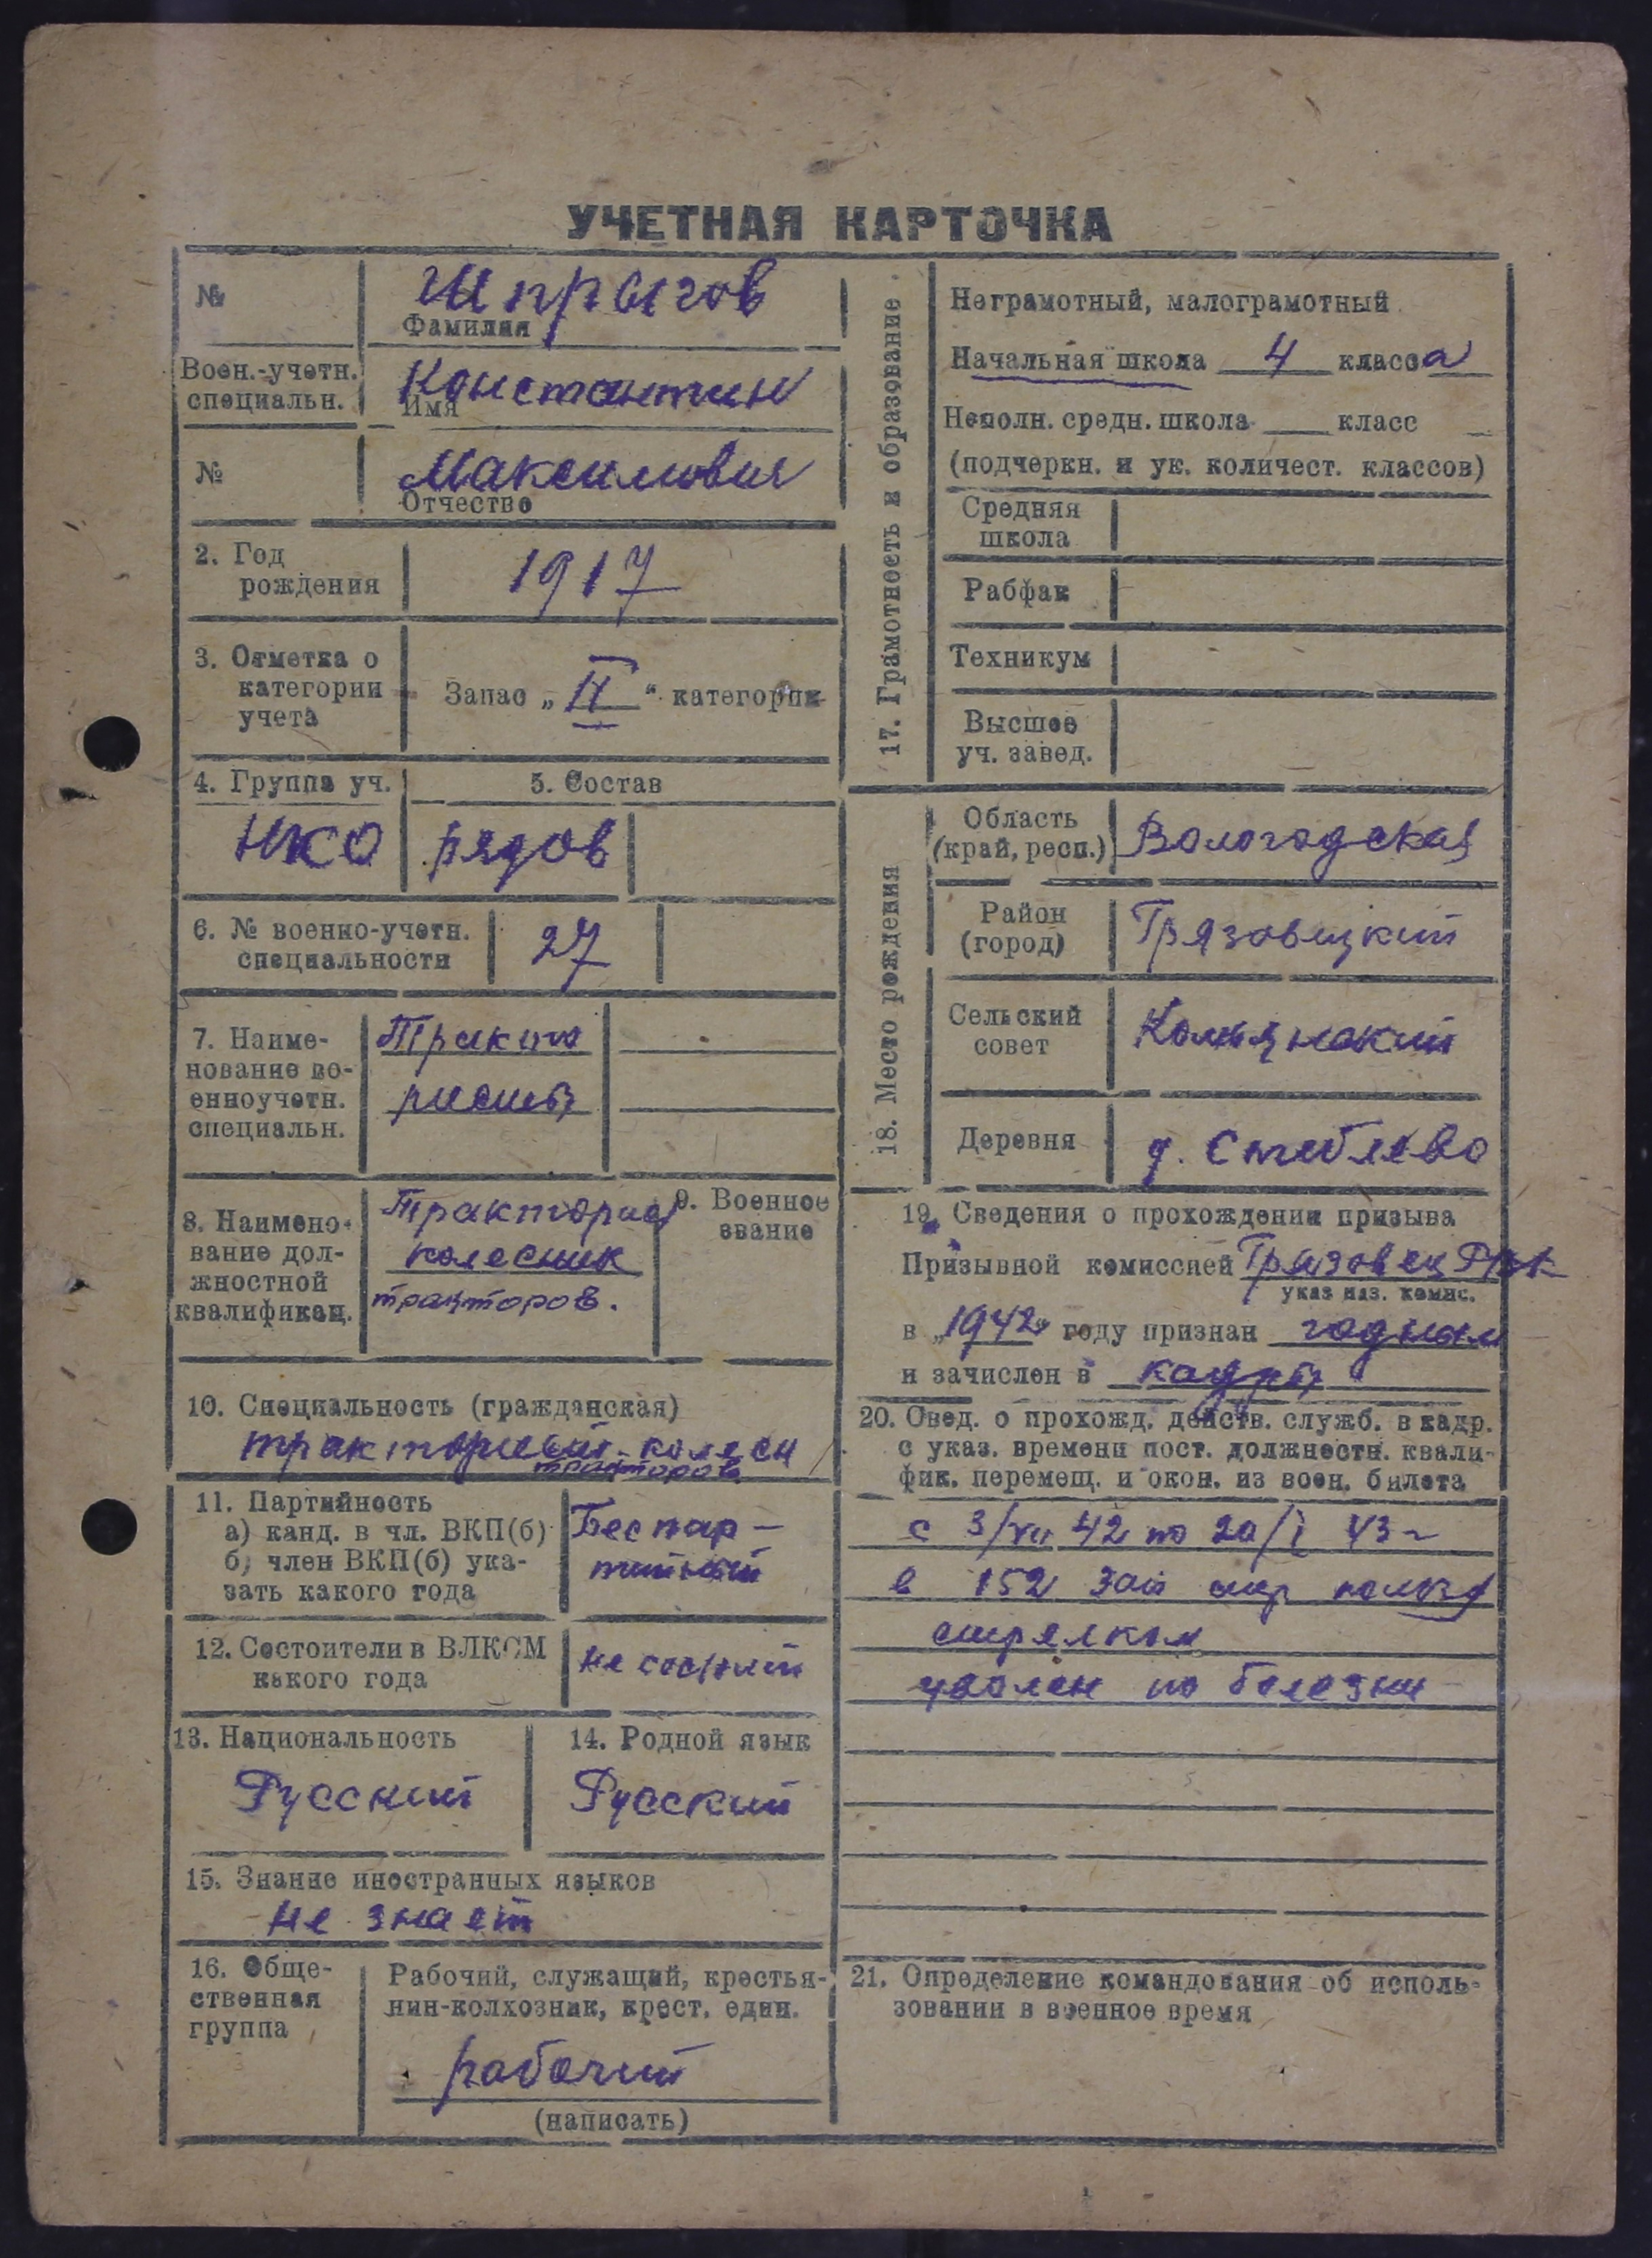 УЧЕТНАЯ КАРТОЧКА
№
Шпрыгов
Фамилия
Воен.-учетн.
специальн.
Константин
Имя
№
Максимович
Отчество
2. Год
рождения
1917
3. Отметка о
категории
учета
Запас „II“ категории
4. Группа уч.
5. Состав
НКО
рядов
6. № военно-учетн.
специальности
27
7. Наиме-
нование во-
енноучетн.
специальн.
Тракто
ристы
8. Наимено-
вание дол-
жностной
квалификац.
Тракторист
колесник
тракторов.
9. Военное
звание
10. Специальность (гражданская)
тракторист-колесн
тракторов
11. Партийность
а) канд. в чл. ВКП(б)
б) член ВКП(б) ука-
зать какого года
Беспар-
тийный
12. Состоители в ВЛКСМ
какого года
не состоит
13. Национальность
Русский
14. Родной язык
Русский
15. Знание иностранных языков
не знает
16. Обще-
ственная
группа
Рабочий, служащий, крестья-
нин-колхозник, крест. един.
рабочий
(написать)
17. Грамотность и образование
Неграмотный, малограмотный
Начальная школа 4 класса
Неполн. средн. школа класс
(подчеркн. и ук. количест. классов)
Средняя
школа
Рабфак
Техникум
Высшее
уч. завед.
18. Место рождения
Область
(край, респ.)
Вологодская
Район
(город)
Грязовецкий
Сельский
совет
Деревня
д. Стеблево
19. Сведения о прохождении призыва
Призывной комиссией Грязовец РВК
указ наз. комис.
в „1942“ году признан годным
и зачислен в кадры
20. Свед. о прохожд. действ. служб. в кадр.
с указ. времени пост. должностн. квали-
фик. перемещ. и окон. из воен. билета
с 3/VII 42 по 20/I 43 г
в 152 зап стр полку
стрелком
уволен по болезни
21. Определение командования об исполь-
зовании в военное время